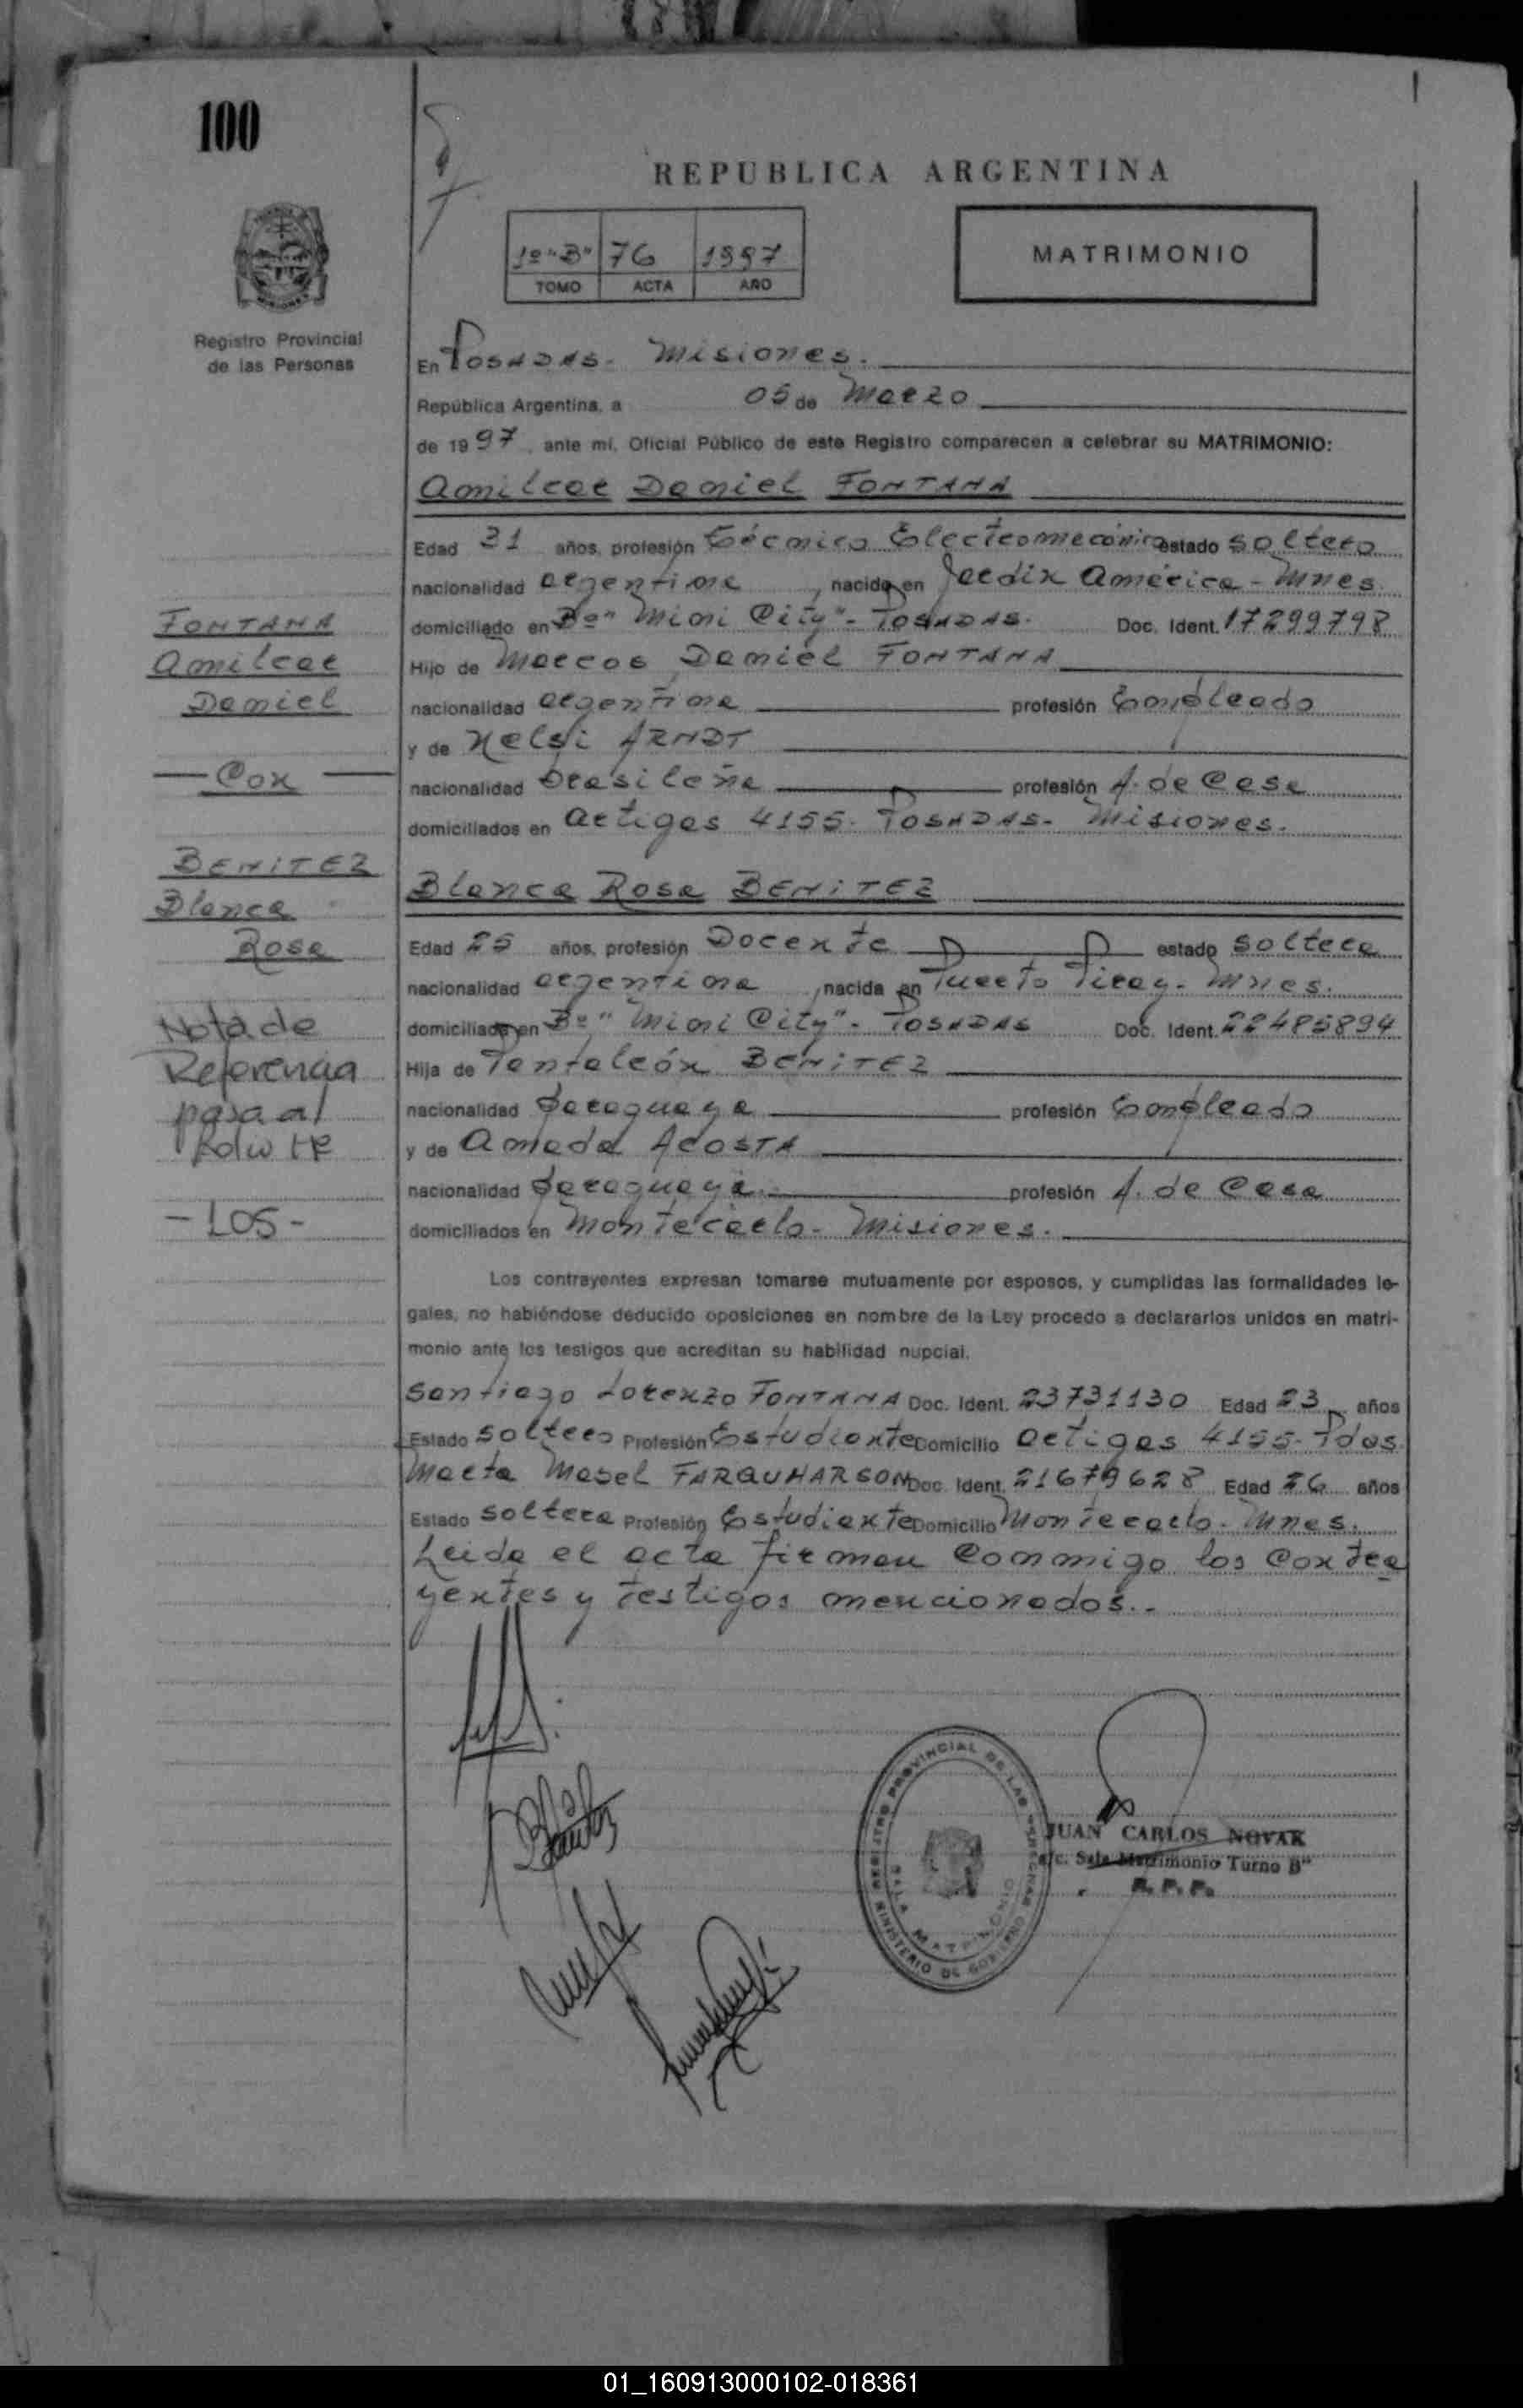 100
REPUBLICA ARGENTINA
1º "B" 76 1997
TOMO ACTA AÑO
MATRIMONIO
Registro Provincial
de las Personas
En Posadas - Misiones.
República Argentina, a 05 de Marzo
de 1997, ante mí, Oficial Público de este Registro comparecen a celebrar su MATRIMONIO:
Amilcar Daniel FONTANA
Edad 31 años, profesión Técnico Electromecánico estado soltero
nacionalidad argentina, nacido en Jardix América - Mnes
domiciliado en Bº "Mini City" - Posadas. Doc. Ident. 17299798
Hijo de Marcos Daniel FONTANA
nacionalidad argentina profesión Empleado
y de Nelsi ARNDT
nacionalidad brasileña profesión A. de Casa
domiciliados en Artigas 4155. Posadas - Misiones.
FONTANA
Amilcar
Daniel
— Con —
BENITEZ
Blanca
Rosa
Blanca Rosa BENITEZ
Edad 25 años, profesión Docente estado soltera
nacionalidad argentina, nacida en Puerto Piray - Mnes.
domiciliada en Bº "Mini City" - Posadas Doc. Ident. 22485894
Hija de Pantaleón BENITEZ
nacionalidad paraguaya profesión Empleado
y de Amada ACOSTA
nacionalidad paraguaya profesión A. de Casa
domiciliados en Montecarlo - Misiones.
Nota de
Referencia
pasa al
- LOS -
Los contrayentes expresan tomarse mutuamente por esposos, y cumplidas las formalidades le-
gales, no habiéndose deducido oposiciones en nombre de la Ley procedo a declararlos unidos en matri-
monio ante los testigos que acreditan su habilidad nupcial.
Santiago Lorenzo FONTANA Doc. Ident. 23731130 Edad 23 años
Estado soltero Profesión Estudiante Domicilio Artigas 4155 - Pdas.
Marta Mabel FARQUHARSON Doc. Ident. 21679628 Edad 26 años
Estado soltera Profesión Estudiante Domicilio Montecarlo - Mnes.
Leida el acta firman conmigo los contra
yentes y testigos mencionados. -
REGISTRO PROVINCIAL DE LAS PERSONAS
MINISTERIO DE GOBIERNO
SALA MATRIMONIO
JUAN CARLOS NOVAK
a/c. Sala Matrimonio Turno B"
R. P. P.
01_160913000102-018361